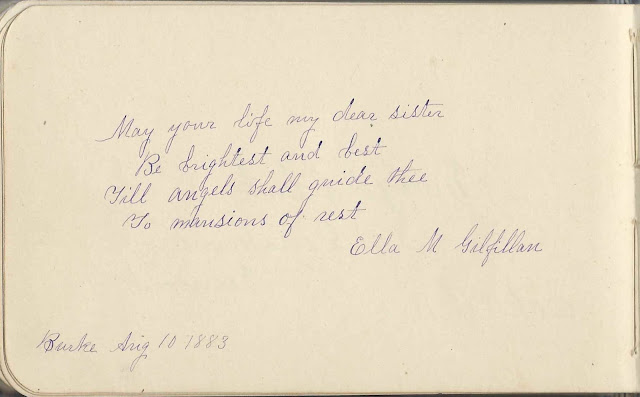 May your life my dear sister
Be brightest and best
Till angels shall guide thee
To mansions of rest
Ella M Gilfillan
Burke Aug 10 1883